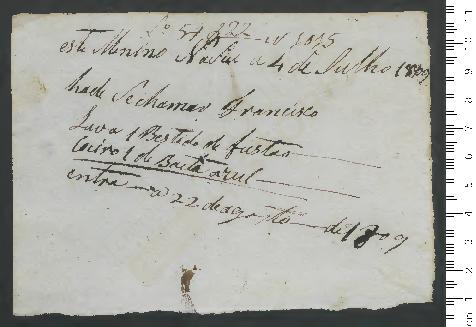 Lº 54 f 222 — Nº 1095
este Menino Nasceu a 4 de Julho 1809
hade Sechamar Francisco
Lava 1 Bestido de fustao
Coutro 1 de Baeta azul
entra — a 22 de agosto — de 1809